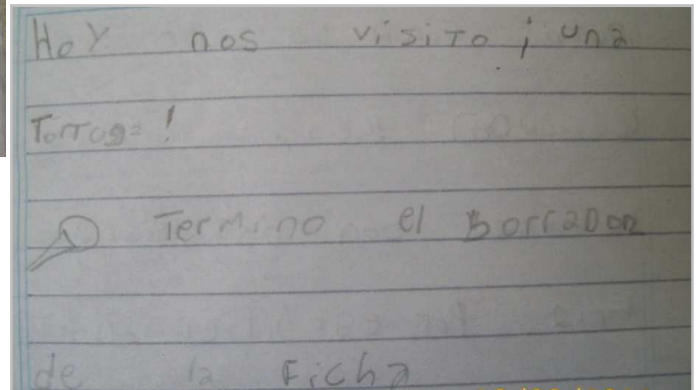 HOY nos visito ¡una
Tortuga!
Termino el Borrador
de la Ficha